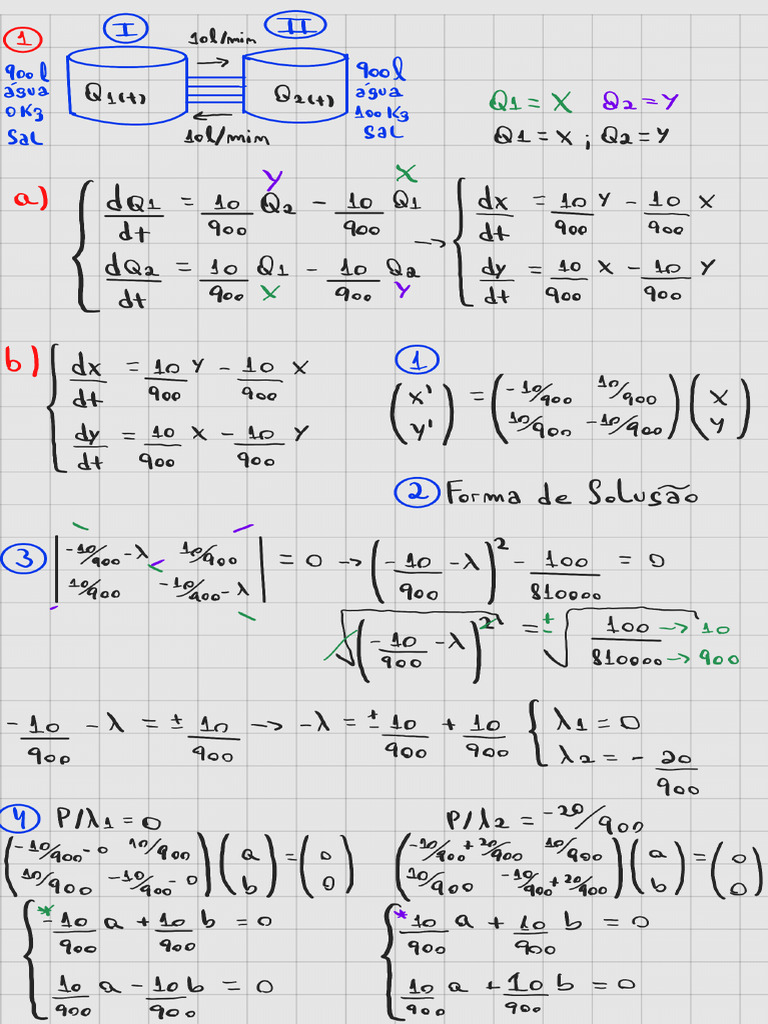 1
I 10l/min II
900l água 0Kg Sal
Q1(t) → Q2(t)
←
10l/min
900l água 100Kg Sal
Q1 = X Q2 = Y
Q1 = X ; Q2 = Y
a) { dQ1/dt = 10/900 Q2 (Y) - 10/900 Q1 (X) → { dx/dt = 10/900 Y - 10/900 X
dQ2/dt = 10/900 Q1 (X) - 10/900 Q2 (Y) dy/dt = 10/900 X - 10/900 Y
b) { dx/dt = 10/900 Y - 10/900 X
dy/dt = 10/900 X - 10/900 Y
1
(X' Y') = (-10/900 10/900 10/900 -10/900) (X Y)
2 Forma de Solução
3 |-10/900-λ 10/900 10/900 -10/900-λ| = 0 → (-10/900 -λ)² - 100/810000 = 0
√(-10/900 -λ)² = ± √100/810000 → 10 → 900
-10/900 - λ = ± 10/900 → -λ = ± 10/900 + 10/900 { λ1 = 0
λ2 = - 20/900
4 P/λ1 = 0
(-10/900-0 10/900 10/900 -10/900-0) (a b) = (0 0)
{ * -10/900 a + 10/900 b = 0
10/900 a - 10/900 b = 0
P/λ2 = -20/900
(-10/900+20/900 10/900 10/900 -10/900+20/900) (a b) = (0 0)
{ * 10/900 a + 10/900 b = 0
10/900 a + 10/900 b = 0